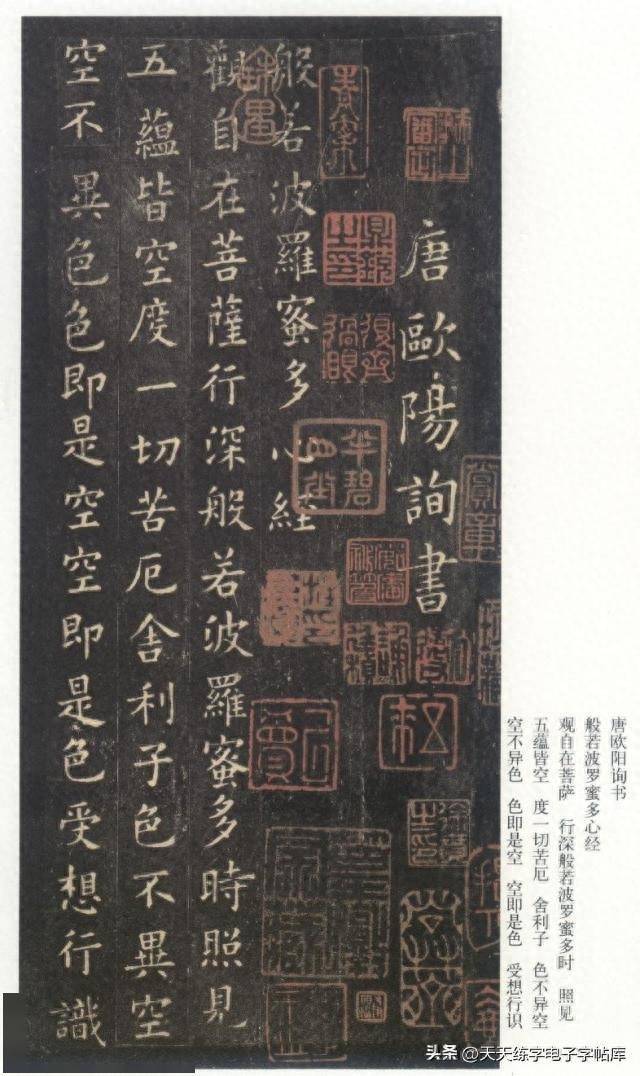 唐歐陽詢書
般若波羅蜜多心経
觀自在菩薩行深般若波羅蜜多時照見
五蘊皆空度一切苦厄舍利子色不異空
空不異色色即是空空即是色受想行識
唐欧阳询书
般若波罗蜜多心经
观自在菩萨 行深般若波罗蜜多时 照见
五蕴皆空 度一切苦厄 舍利子 色不异空
空不异色 色即是空 空即是色 受想行识
头条 @天天练字电子字帖库